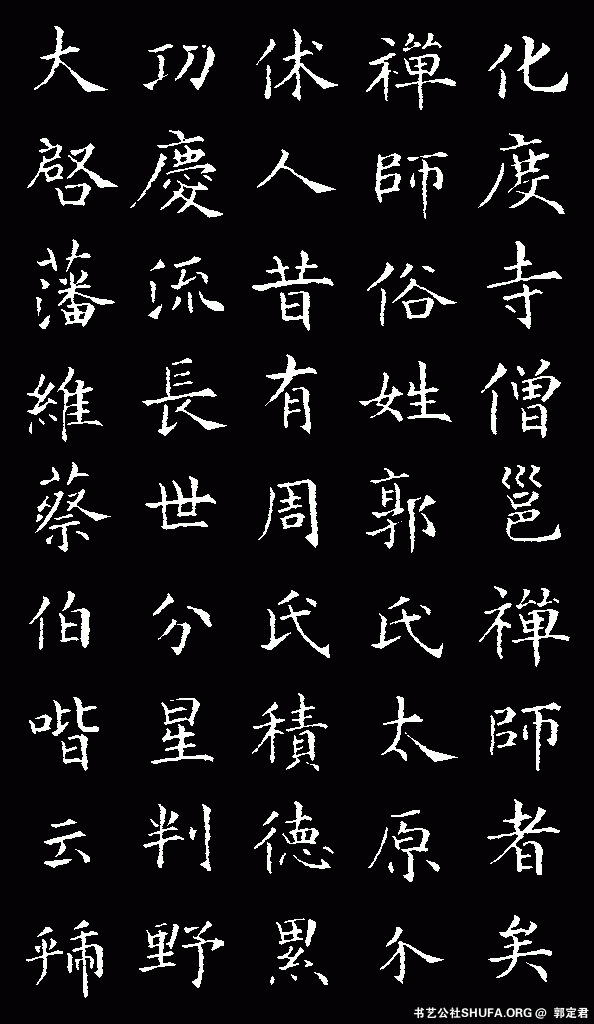 化度寺僧邕禪師者矣
禪師俗姓郭氏太原介
休人昔有周氏積德累
功慶流長世分星判野
大啓藩維蔡伯喈云虢
书艺公社SHUFA.ORG @ 郭定君